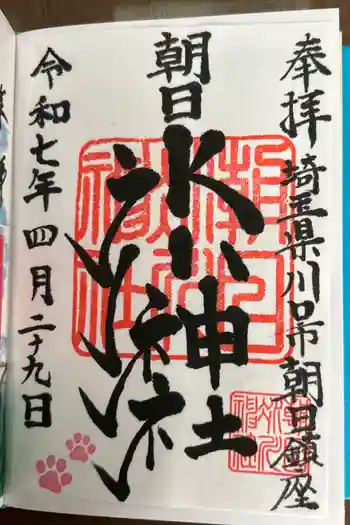 奉拝 埼玉県川口市朝日鎮座
朝日
氷川神社
令和七年四月二十九日